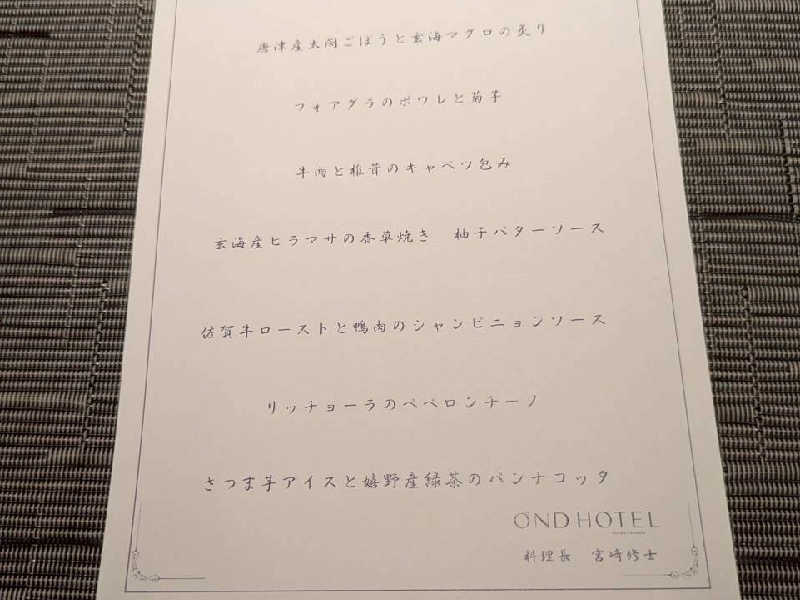 唐津産太閤ごぼうと玄海マグロの炙り
フォアグラのポワレと菊芋
牛肉と椎茸のキャベツ包み
玄海産ヒラマサの香草焼き 柚子バターソース
佐賀牛ローストと鴨肉のシャンピニョンソース
リッチョーラのペペロンチーノ
さつま芋アイスと嬉野産緑茶のパンナコッタ
OND HOTEL
料理長 宮崎修士